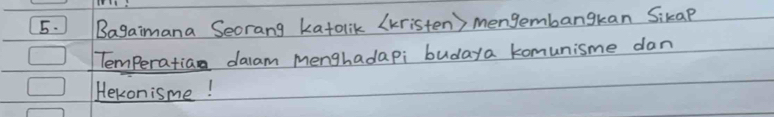 5. Bagaimana Seorang katolik <kristen> mengembangkan Sikap
Temperatia dalam menghadapi budaya komunisme dan
Hekonisme !